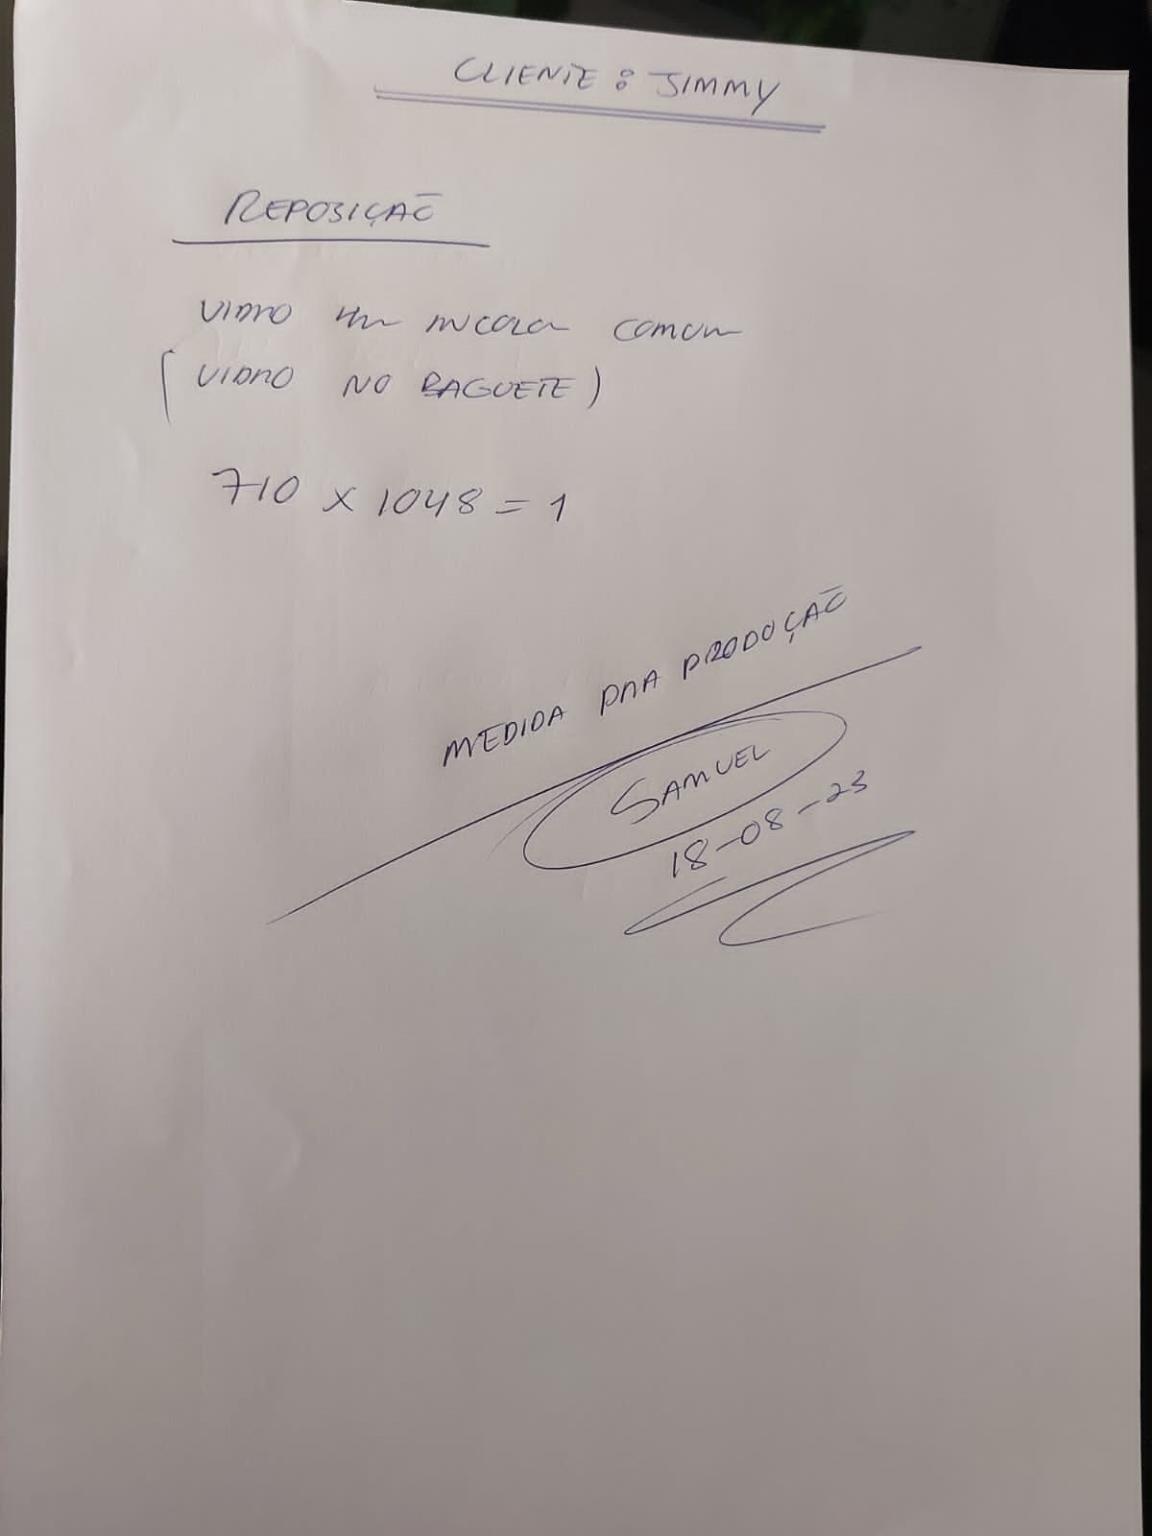 CLIENTE: JIMMY
REPOSIÇÃO
VIDRO 4m INCOLOR COMUM
(VIDRO NO BAGUETE)
710 x 1048 = 1
MEDIDA PRA PRODUÇÃO
SAMUEL
18-08-23